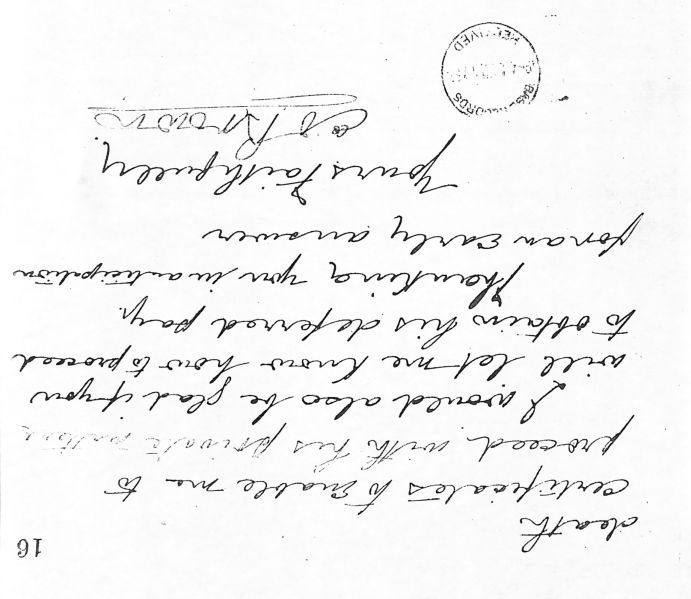 16
death
certificates to enable me to
proceed with his private matters
I would also be glad if you
will let me know how to proceed
to obtain his deferred pay.
Thanking you in anticipation
for an early answer
Yours Faithfully
Brown
BASE RECORDS
RECEIVED